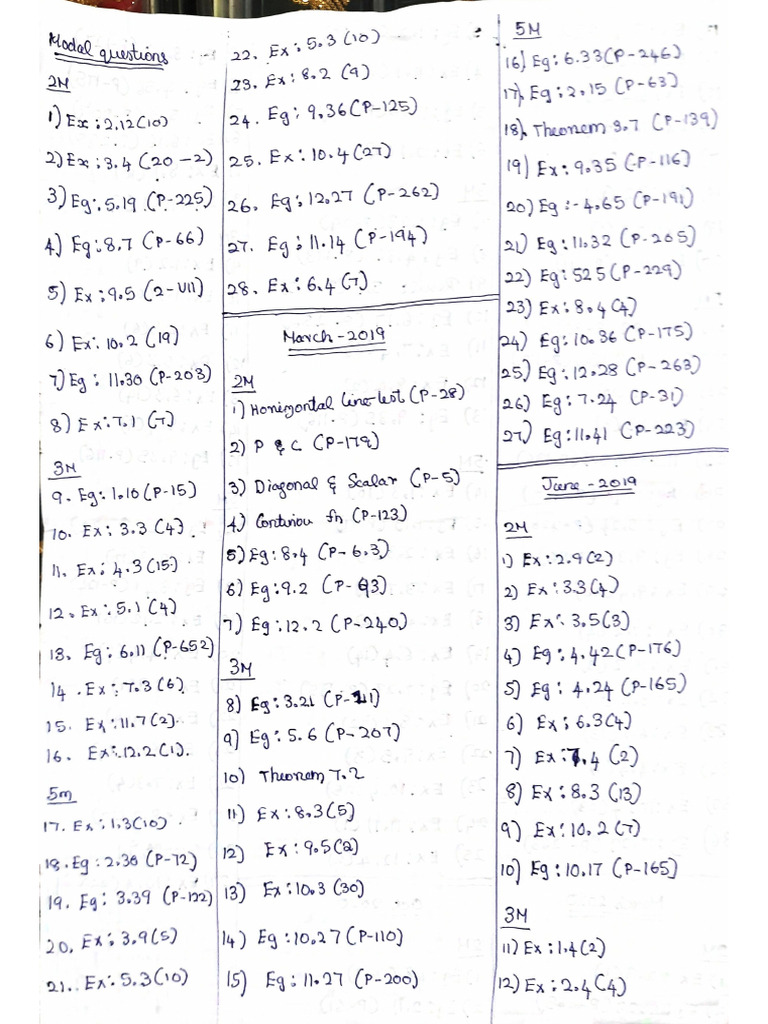 Modal questions
2M
1) Ex: 2.12(10)
2) Ex: 3.4 (20-2)
3) Eg: 5.19 (P-225)
4) Eg: 8.7 (P-66)
5) Ex: 9.5 (2-VII)
6) Ex: 10.2 (19)
7) Eg: 11.30 (P-203)
8) Ex: 7.1 (7)
3M
9. Eg: 1.10 (P-15)
10. Ex: 3.3 (4)
11. Ex: 4.3 (15)
12. Ex: 5.1 (4)
13. Eg: 6.11 (P-652)
14. Ex: 7.3 (6)
15. Ex: 11.7 (2).
16. Ex: 12.2 (1).
5m
17. Ex: 1.3(10)
18. Eg: 2.36 (P-72)
19. Eg: 3.39 (P-122)
20. Ex: 3.9(5)
21. Ex: 5.3(10)
22. Ex: 5.3(10)
23. Ex: 8.2 (9)
24. Eg: 9.36(P-125)
25. Ex: 10.4(27)
26. Eg: 12.27 (P-262)
27. Eg: 11.14 (P-194)
28. Ex: 6.4(7)
March-2019
2M
1) Horizontal line test (P-28)
2) P & C (P-179)
3) Diagonal & Scalar (P-5)
4) Continiou fn (P-123)
5) Eg: 8.4 (P-6.3)
6) Eg: 9.2 (P-93)
7) Eg: 12.2 (P-240)
3M
8) Eg: 3.21 (P-111)
9) Eg: 5.6 (P-207)
10) Theorem 7.2
11) Ex: 8.3(5)
12) Ex: 9.5(2)
13) Ex: 10.3 (30)
14) Eg: 10.27 (P-110)
15) Eg: 11.27 (P-200)
5M
16) Eg: 6.33(P-246)
17) Eg: 2.15 (P-63)
18) Theorem 3.7 (P-139)
19) Ex: 9.35 (P-116)
20) Eg:- 4.65 (P-191)
21) Eg: 11.32 (P-205)
22) Eg: 525 (P-229)
23) Ex: 8.4(4)
24) Eg: 10.36 (P-175)
25) Eg: 12.28 (P-263)
26) Eg: 7.24 (P-31)
27) Eg: 11.41 (P-223)
June-2019
2M
1) Ex: 2.9(2)
2) Ex: 3.3(4)
3) Ex: 3.5(3)
4) Eg: 4.42(P-176)
5) Eg: 4.24 (P-165)
6) Ex: 6.3(4)
7) Ex: 7.4 (2)
8) Ex: 8.3 (13)
9) Ex: 10.2(7)
10) Eg: 10.17 (P-165)
3M
11) Ex: 1.4(2)
12) Ex: 2.4(4)